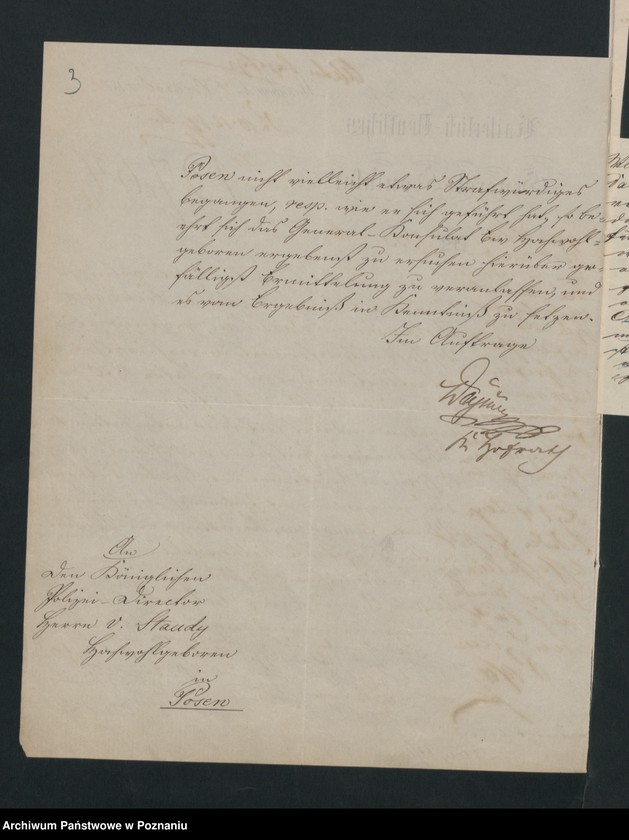 3
Posen nicht vielleicht etwas Strafwürdiges
begangen, resp. wie er sich geführt hat, so be-
ehrt sich das General-Konsulat Ew. Hochwohl-
geboren ergebenst zu ersuchen hierüber ge-
fälligst Ermittelung zu veranlassen, und
es vom Ergebniß in Kenntniß zu setzen.
Im Auftrage
K Hofrath
An
den Königlichen
Polizei-Director
Herrn v. Staudy
Hochwohlgeboren
in
Posen
Archiwum Państwowe w Poznaniu